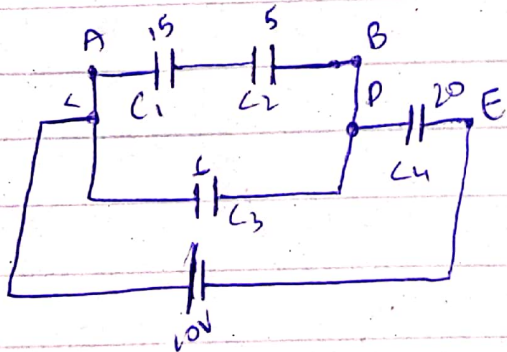 A 15 5 B
C1 C2 D 20 E
C4
C3
10V